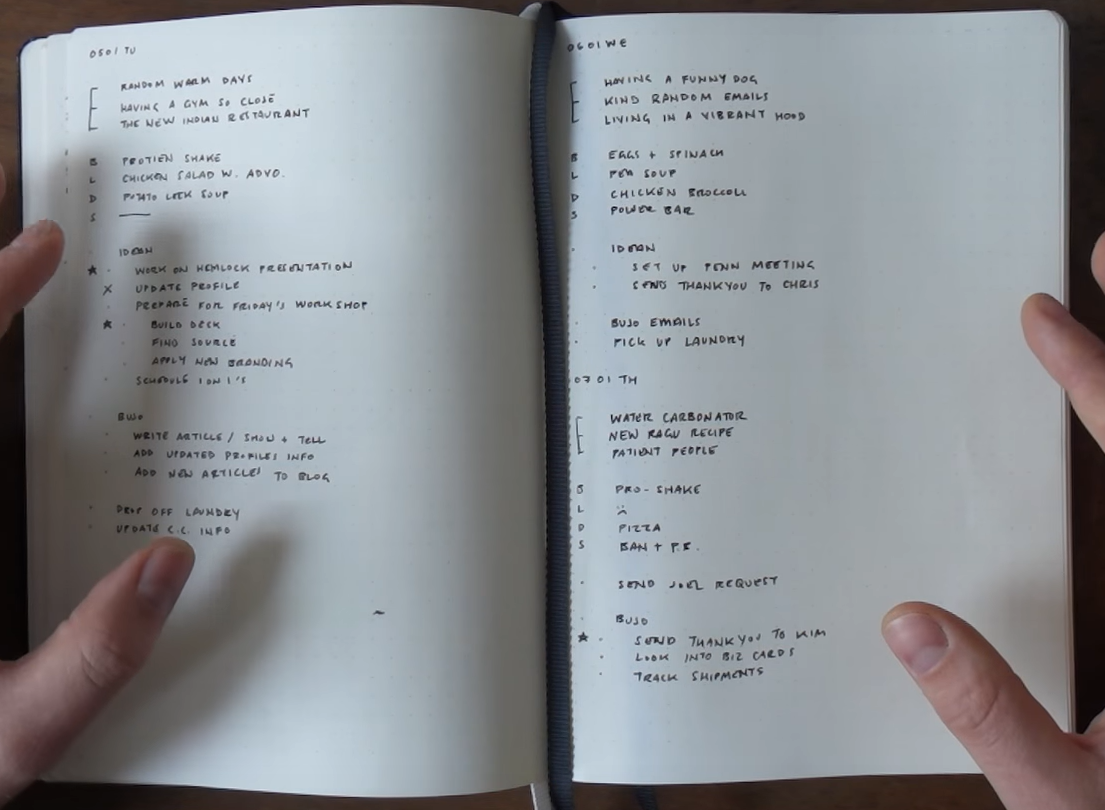 0501 TU
RANDOM WARM DAYS
HAVING A GYM SO CLOSE
THE NEW INDIAN RESTAURANT
B PROTIEN SHAKE
L CHICKEN SALAD W. ADVO.
D POTATO LEEK SOUP
S —
IDEAN
★ · WORK ON HEMLOCK PRESENTATION
X UPDATE PROFILE
· PREPARE FOR FRIDAY'S WORKSHOP
★ · BUILD DECK
· FIND SOURCE
· APPLY NEW BRANDING
· SCHEDULE 1 ON 1'S
· BUJO
· WRITE ARTICLE / SHOW + TELL
· ADD UPDATED PROFILES INFO
· ADD NEW ARTICLES TO BLOG
· DROP OFF LAUNDRY
· UPDATE C.C. INFO
~
0601 WE
HAVING A FUNNY DOG
KIND RANDOM EMAILS
LIVING IN A VIBRANT HOOD
B EGGS + SPINACH
L PEA SOUP
D CHICKEN BROCCOLI
S POWER BAR
· IDEAN
· SET UP PENN MEETING
· SEND THANKYOU TO CHRIS
· BUJO EMAILS
· PICK UP LAUNDRY
0701 TH
WATER CARBONATOR
NEW RAGU RECIPE
PATIENT PEOPLE
B PRO-SHAKE
L :(
D PIZZA
S BAN + P.B.
· SEND JOEL REQUEST
· BUJO
★ · SEND THANKYOU TO KIM
· LOOK INTO BIZ CARDS
· TRACK SHIPMENTS